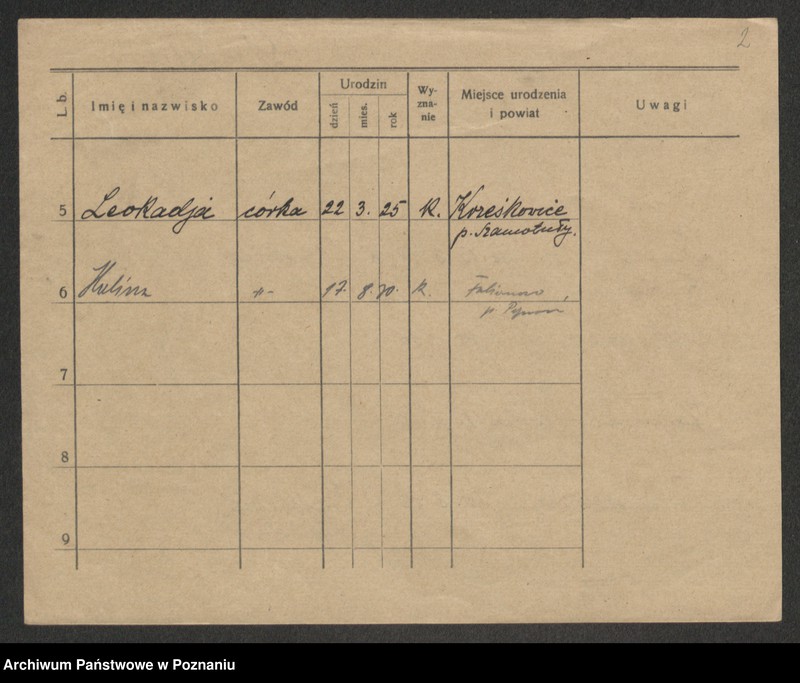 2
L. b.
Imię i nazwisko
Zawód
Urodzin
dzień
mies.
rok
Wy-
zna-
nie
Miejsce urodzenia
i powiat
Uwagi
5 Leokadja córka 22 3. 25 k. 
p. Szamotuły.
6 Halina -"- 17. 8. 30. k.
7
8
9
Archiwum Państwowe w Poznaniu